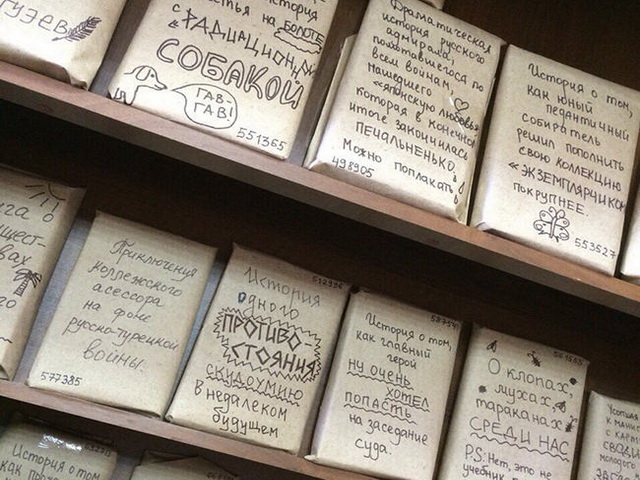 ГУЗЕВ
история
на БОЛОТЕ
с «РАДИАЦИОННОЙ
СОБАКОЙ
ГАВ-
ГАВ!
551365
Драматическая
история русского
адмирала,
по всем войнам,
нашедшего
«японскую любовь»
которая в конечном
итоге закончилась
ПЕЧАЛЬНЕНЬКО.
Можно поплакать
498905
История о том,
как юный
педантичный
собиратель
решил пополнить
свою коллекцию
«ЭКЗЕМПЛЯРЧИКОМ
ПОКРУПНЕЕ.
553527
Приключения
коллежского
асессора
на фоне
русско-турецкой
войны.
577385
История
одного
ПРОТИВО-
СТОЯНИЯ
СКУДОУМИЮ
в недалёком
будущем
История о том,
как главный
герой
ну очень
хотел
попасть
на заседание
суда.
О клопах,
мухах,
тараканах
СРЕДИ НАС
P.S: Нет, это не
учебник
История о том,
как